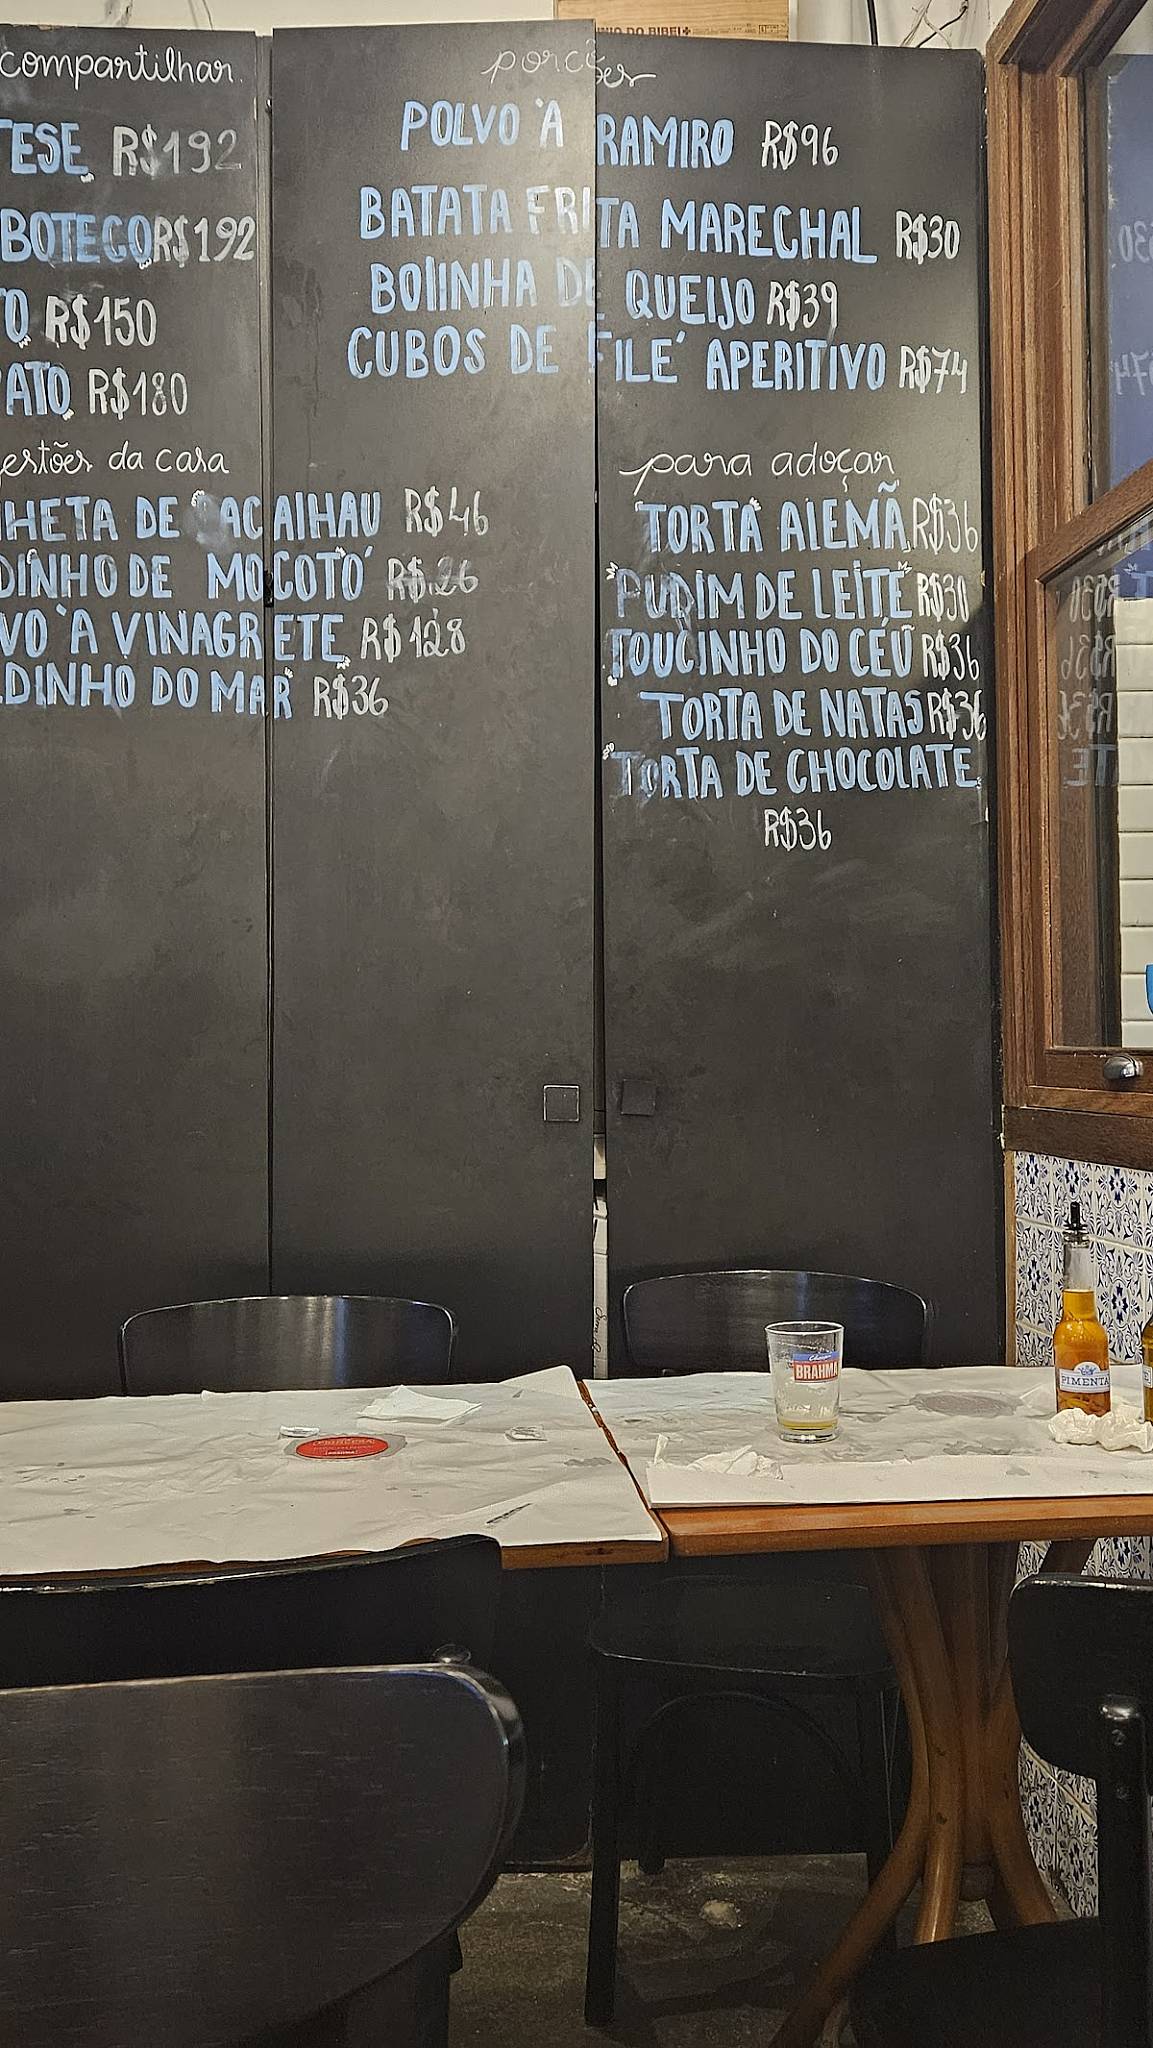 compartilhar
TESE R$192
BOTECO R$192
TO R$150
PATO R$180
estões da casa
HETA DE BACAlHAU R$46
DINHO DE MOCOTÓ R$26
VO À VINAGRETE R$128
LDINHO DO MAR R$36
porções
POLVO À RAMIRO R$96
BATATA FRITA MARECHAL R$30
BOlINHA DE QUEIJO R$39
CUBOS DE FILÉ APERITIVO R$74
para adoçar
TORTA ALEMÃ R$36
PUDIM DE LEITE R$30
TOUCINHO DO CÉU R$36
TORTA DE NATAS R$36
TORTA DE CHOCOLATE
R$36
BRAHMA
PIMENTA